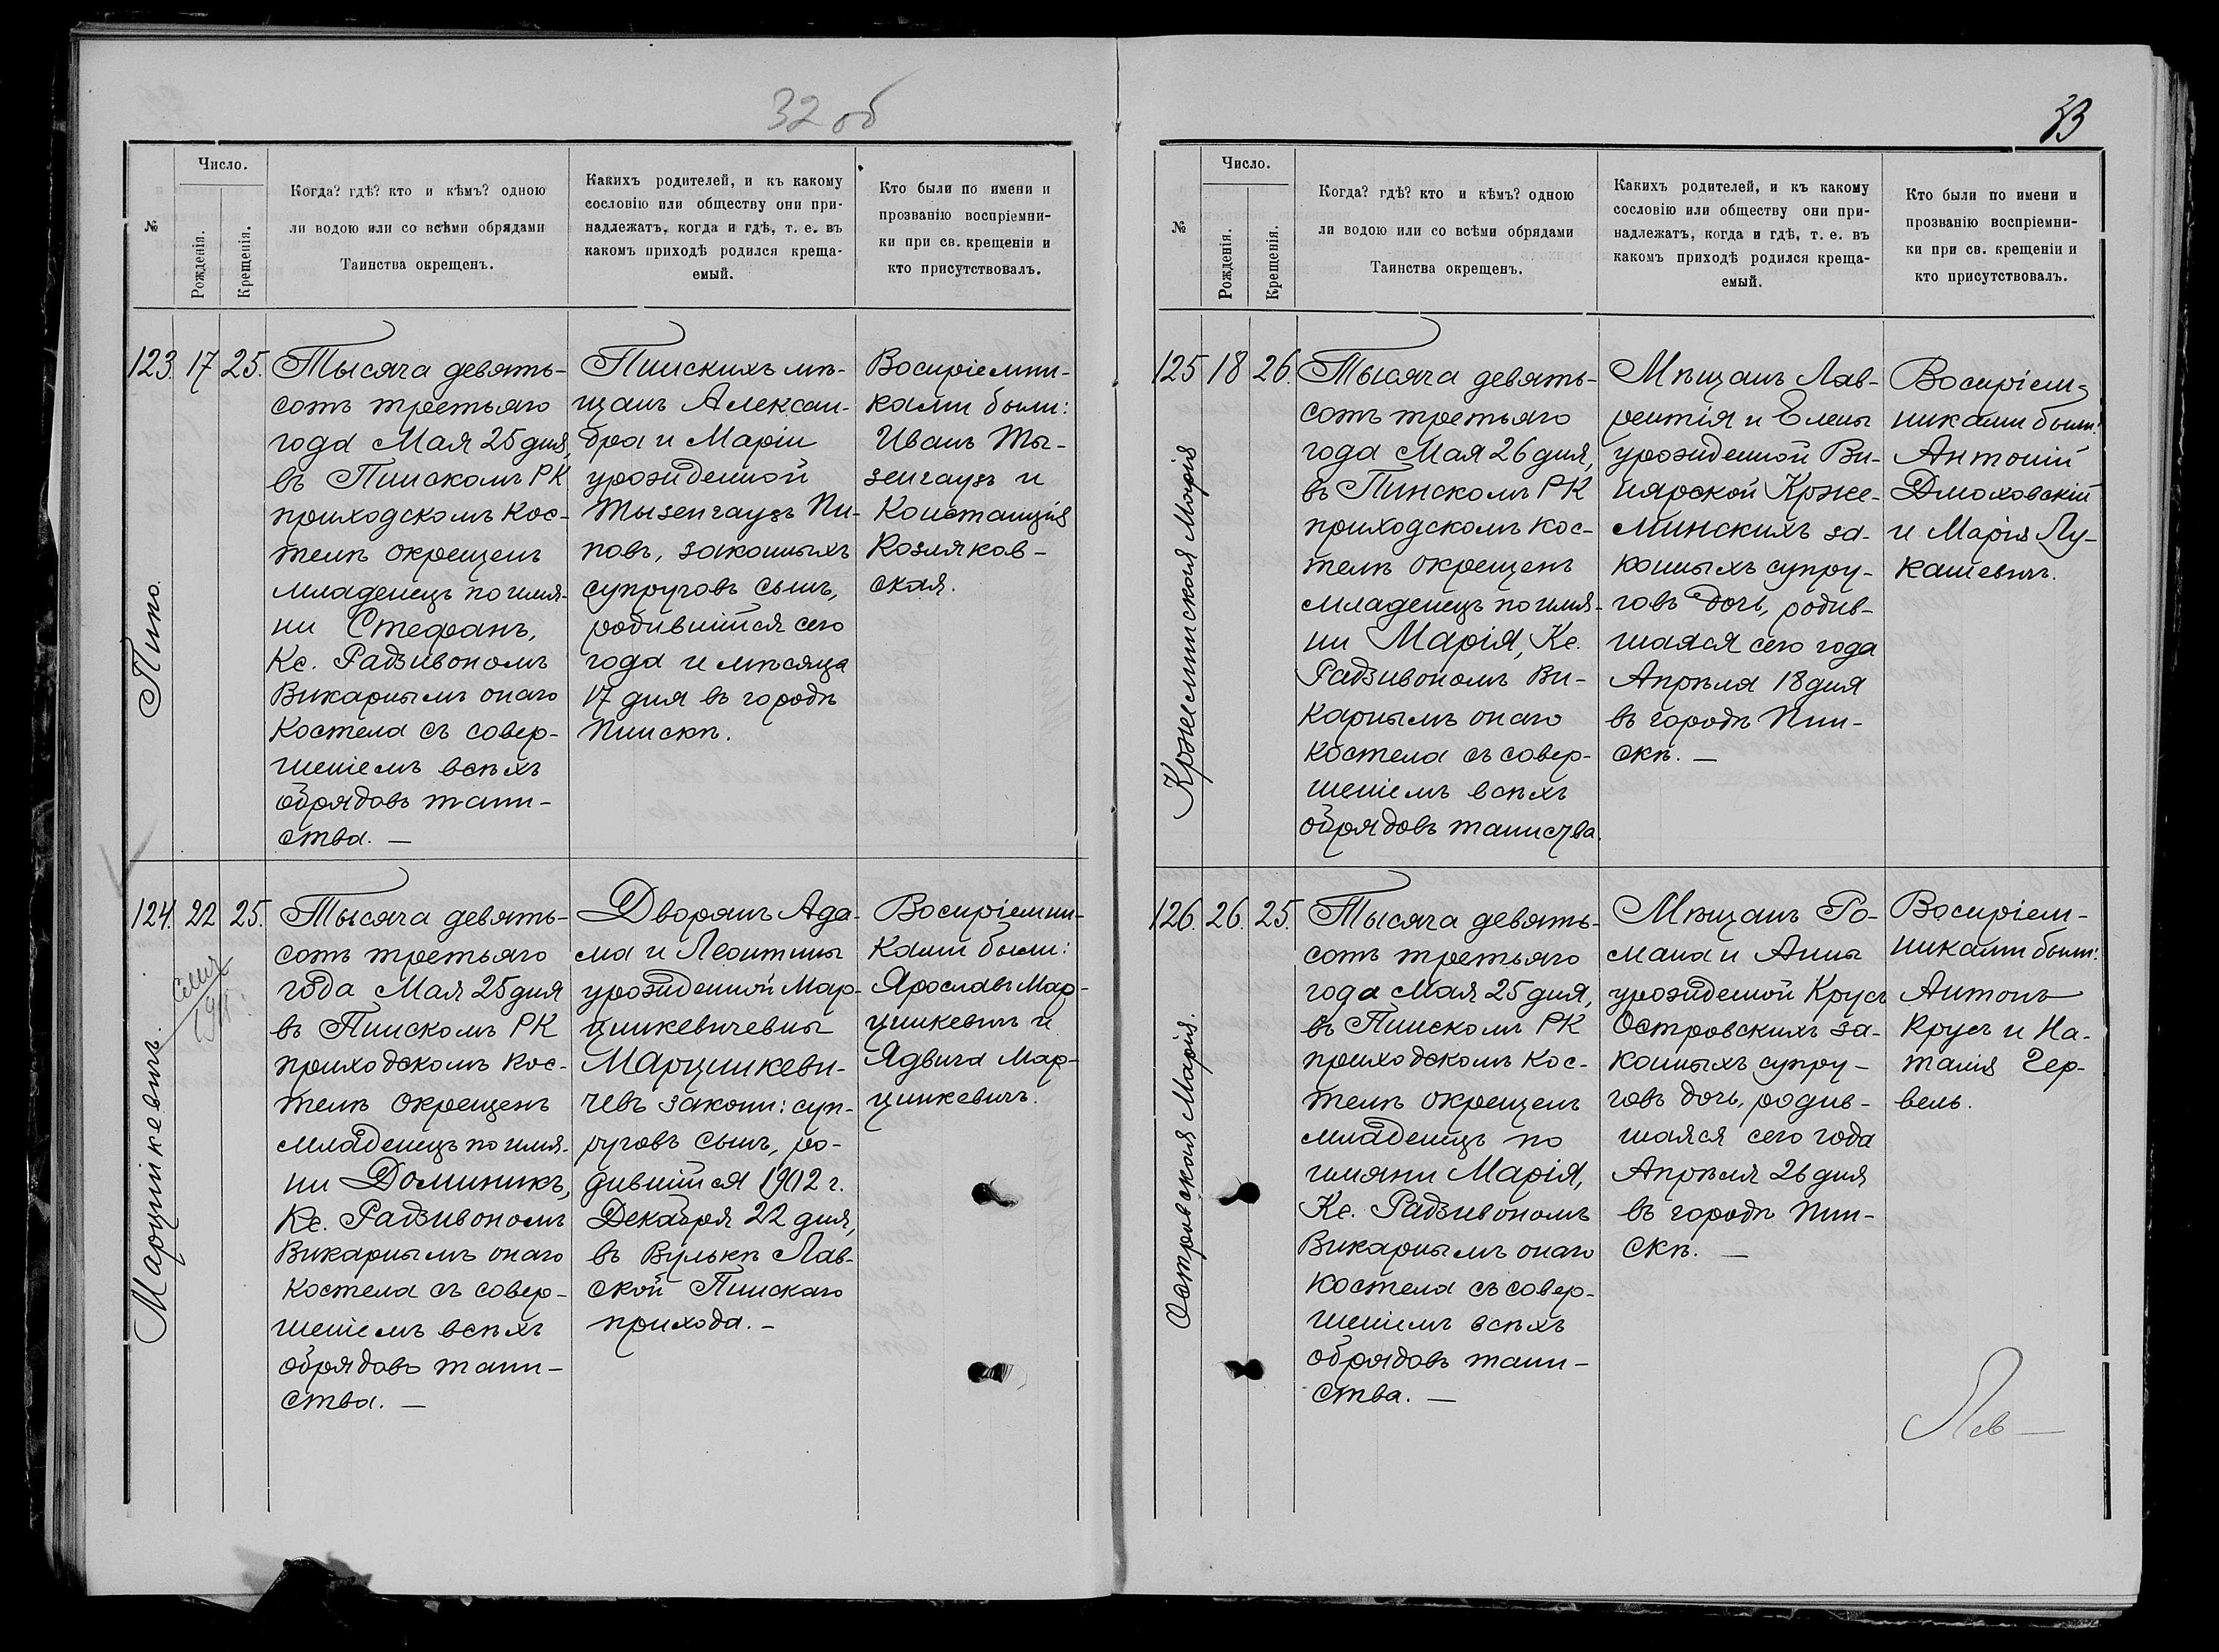 32 об
№
Число.
Рожденія.
Крещенія.
Когда? гдѣ? кто и кѣмъ? одною
ли водою или со всѣми обрядами
Таинства окрещенъ.
Какихъ родителей, и къ какому
сословію или обществу они при-
надлежатъ, когда и гдѣ, т. е. въ
какомъ приходѣ родился креща-
емый.
Кто были по имени и
прозванію воспріемни-
ки при св. крещеніи и
кто присутствовалъ.
123. 17 25.
Пипо.
Тысяча девять-
сотъ третьяго
года Мая 25 дня,
въ Пинскомъ РК
приходскомъ кос-
телѣ окрещенъ
младенецъ по имя-
ни Стефанъ,
Кс. Радзивономъ
Викарнымъ онаго
Костела съ совер-
шеніемъ всѣхъ
обрядовъ таин-
ства. —
Пинскихъ мѣ-
щанъ Алексан-
дра и Маріи
урожденной
Тызенгаузъ Пи-
повъ, законныхъ
супруговъ сынъ,
родившійся сего
года и мѣсяца
17 дня въ городѣ
Пинскѣ.
Воспріемни-
ками были:
Иванъ Ты-
зенгаузъ и
Констанція
Козляков-
ская.
124. 22 25.
Марцинкевичъ.
Тысяча девять-
сотъ третьяго
года Мая 25 дня
въ Пинскомъ РК
приходскомъ кос-
телѣ окрещенъ
младенецъ по имя-
ни Доминикъ,
Кс. Радзивономъ
Викарнымъ онаго
костела съ совер-
шеніемъ всѣхъ
обрядовъ таин-
ства. —
Дворянъ Ада-
ма и Леонтины
урожденной Мар-
цинкевичевны
Марцинкеви-
чевъ законн: суп-
руговъ сынъ, ро-
дившійся 1902 г.
Декабря 22 дня,
въ Вулькѣ Лав-
ской Пинскаго
прихода. —
Воспріемни-
ками были:
Ярославъ Мар-
цинкевичъ и
Ядвига Мар-
цинкевичъ.
33
№
Число.
Рожденія.
Крещенія.
Когда? гдѣ? кто и кѣмъ? одною
ли водою или со всѣми обрядами
Таинства окрещенъ.
Какихъ родителей, и къ какому
сословію или обществу они при-
надлежатъ, когда и гдѣ, т. е. въ
какомъ приходѣ родился креща-
емый.
Кто были по имени и
прозванію воспріемни-
ки при св. крещеніи и
кто присутствовалъ.
125 18 26.
Кржеминская Марія
Тысяча девять-
сотъ третьяго
года Мая 26 дня,
въ Пинскомъ РК
приходскомъ кос-
телѣ окрещенъ
младенецъ по имя-
ни Марія, Кс.
Радзивономъ Ви-
карнымъ онаго
костела съ совер-
шеніемъ всѣхъ
обрядовъ таинства.
Мѣщанъ Лав-
рентія и Елены
урожденной Ви-
нярской Крже-
минскихъ за-
конныхъ супру-
говъ дочь, родив-
шаяся сего года
Апрѣля 18 дня
въ городѣ Пин-
скѣ. —
Воспріем-
никами были:
Антоній
Дмоховскій
и Марія Лу-
кашевичъ.
126. 26. 25.
Островская Марія.
Тысяча девять-
сотъ третьяго
года Мая 25 дня,
въ Пинскомъ РК
приходскомъ кос-
телѣ окрещенъ
младенецъ по
имяни Марія,
Кс. Радзивономъ
Викарнымъ онаго
костела съ совер-
шеніемъ всѣхъ
обрядовъ таин-
ства. —
Мѣщанъ Ро-
мана и Анны
урожденной Крусъ
Островскихъ за-
конныхъ супру-
говъ дочь, родив-
шаяся сего года
Апрѣля 26 дня
въ городѣ Пин-
скѣ. —
Воспріем-
никами были:
Антонъ
Крусъ и На-
талія Гер-
вель.